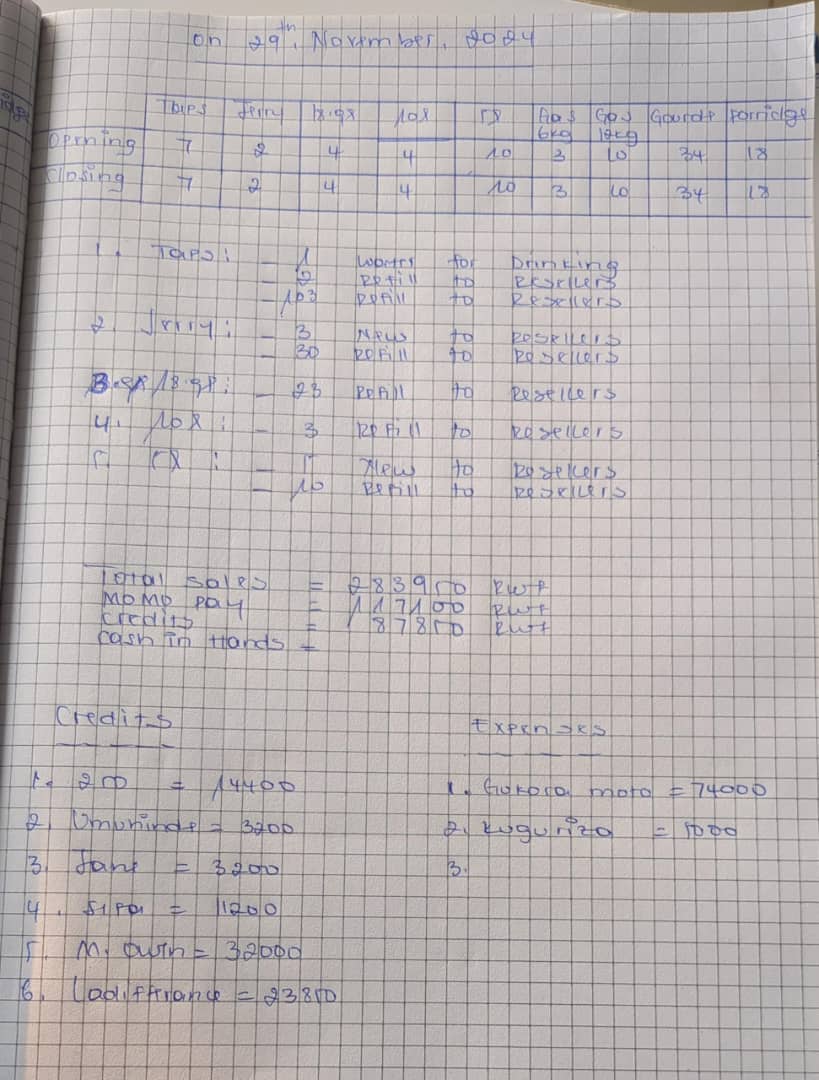 on 29th, November, 2024
Taps Jerry 18.9l 10l 5l Gas 6kg Gas 12kg Gourde Porridge
Opening 7 2 4 4 10 3 10 34 18
Closing 7 2 4 4 10 3 10 34 18
1. Taps: - 1 Waters for Drinking
- 2 Refill to Resellers
- 103 Refill to Resellers
2. Jerry: - 3 New to Resellers
- 30 Refill to Resellers
3. 18.9l: - 23 Refill to Resellers
4. 10l: - 3 Refill to Resellers
5. 5l: - 5 New to Resellers
- 10 Refill to Resellers
Total sales = 283950 Rwf
MoMo pay = 117100 Rwf
Credits = 87850 Rwf
Cash in Hands =
Credits Expenses
1. 200 = 14400 1. Gukora moto = 74000
2. Umurinde = 3200 2. kuguriza = 1000
3. Jane = 3200 3.
4. Sifa = 11200
5. M. Owen = 32000
6. Ladiffirance = 23850